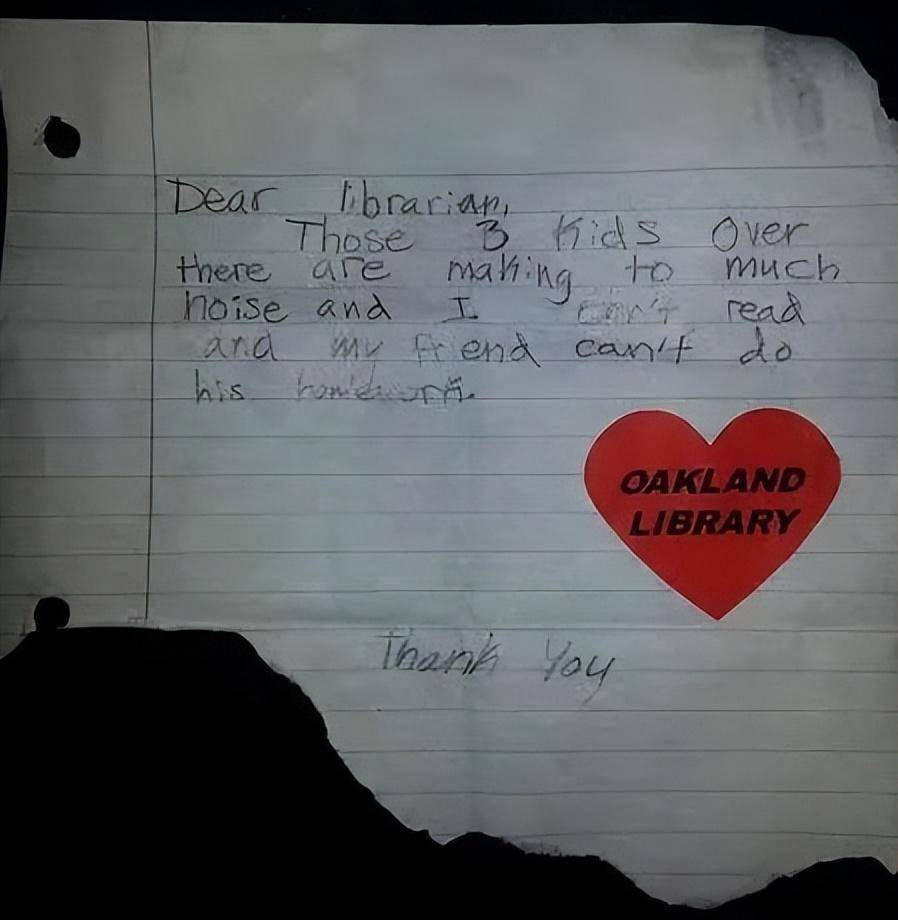 Dear librarian,
Those 3 Kids Over
there are making to much
noise and I can't read
and my friend can't do
his homework.
OAKLAND
LIBRARY
Thank You